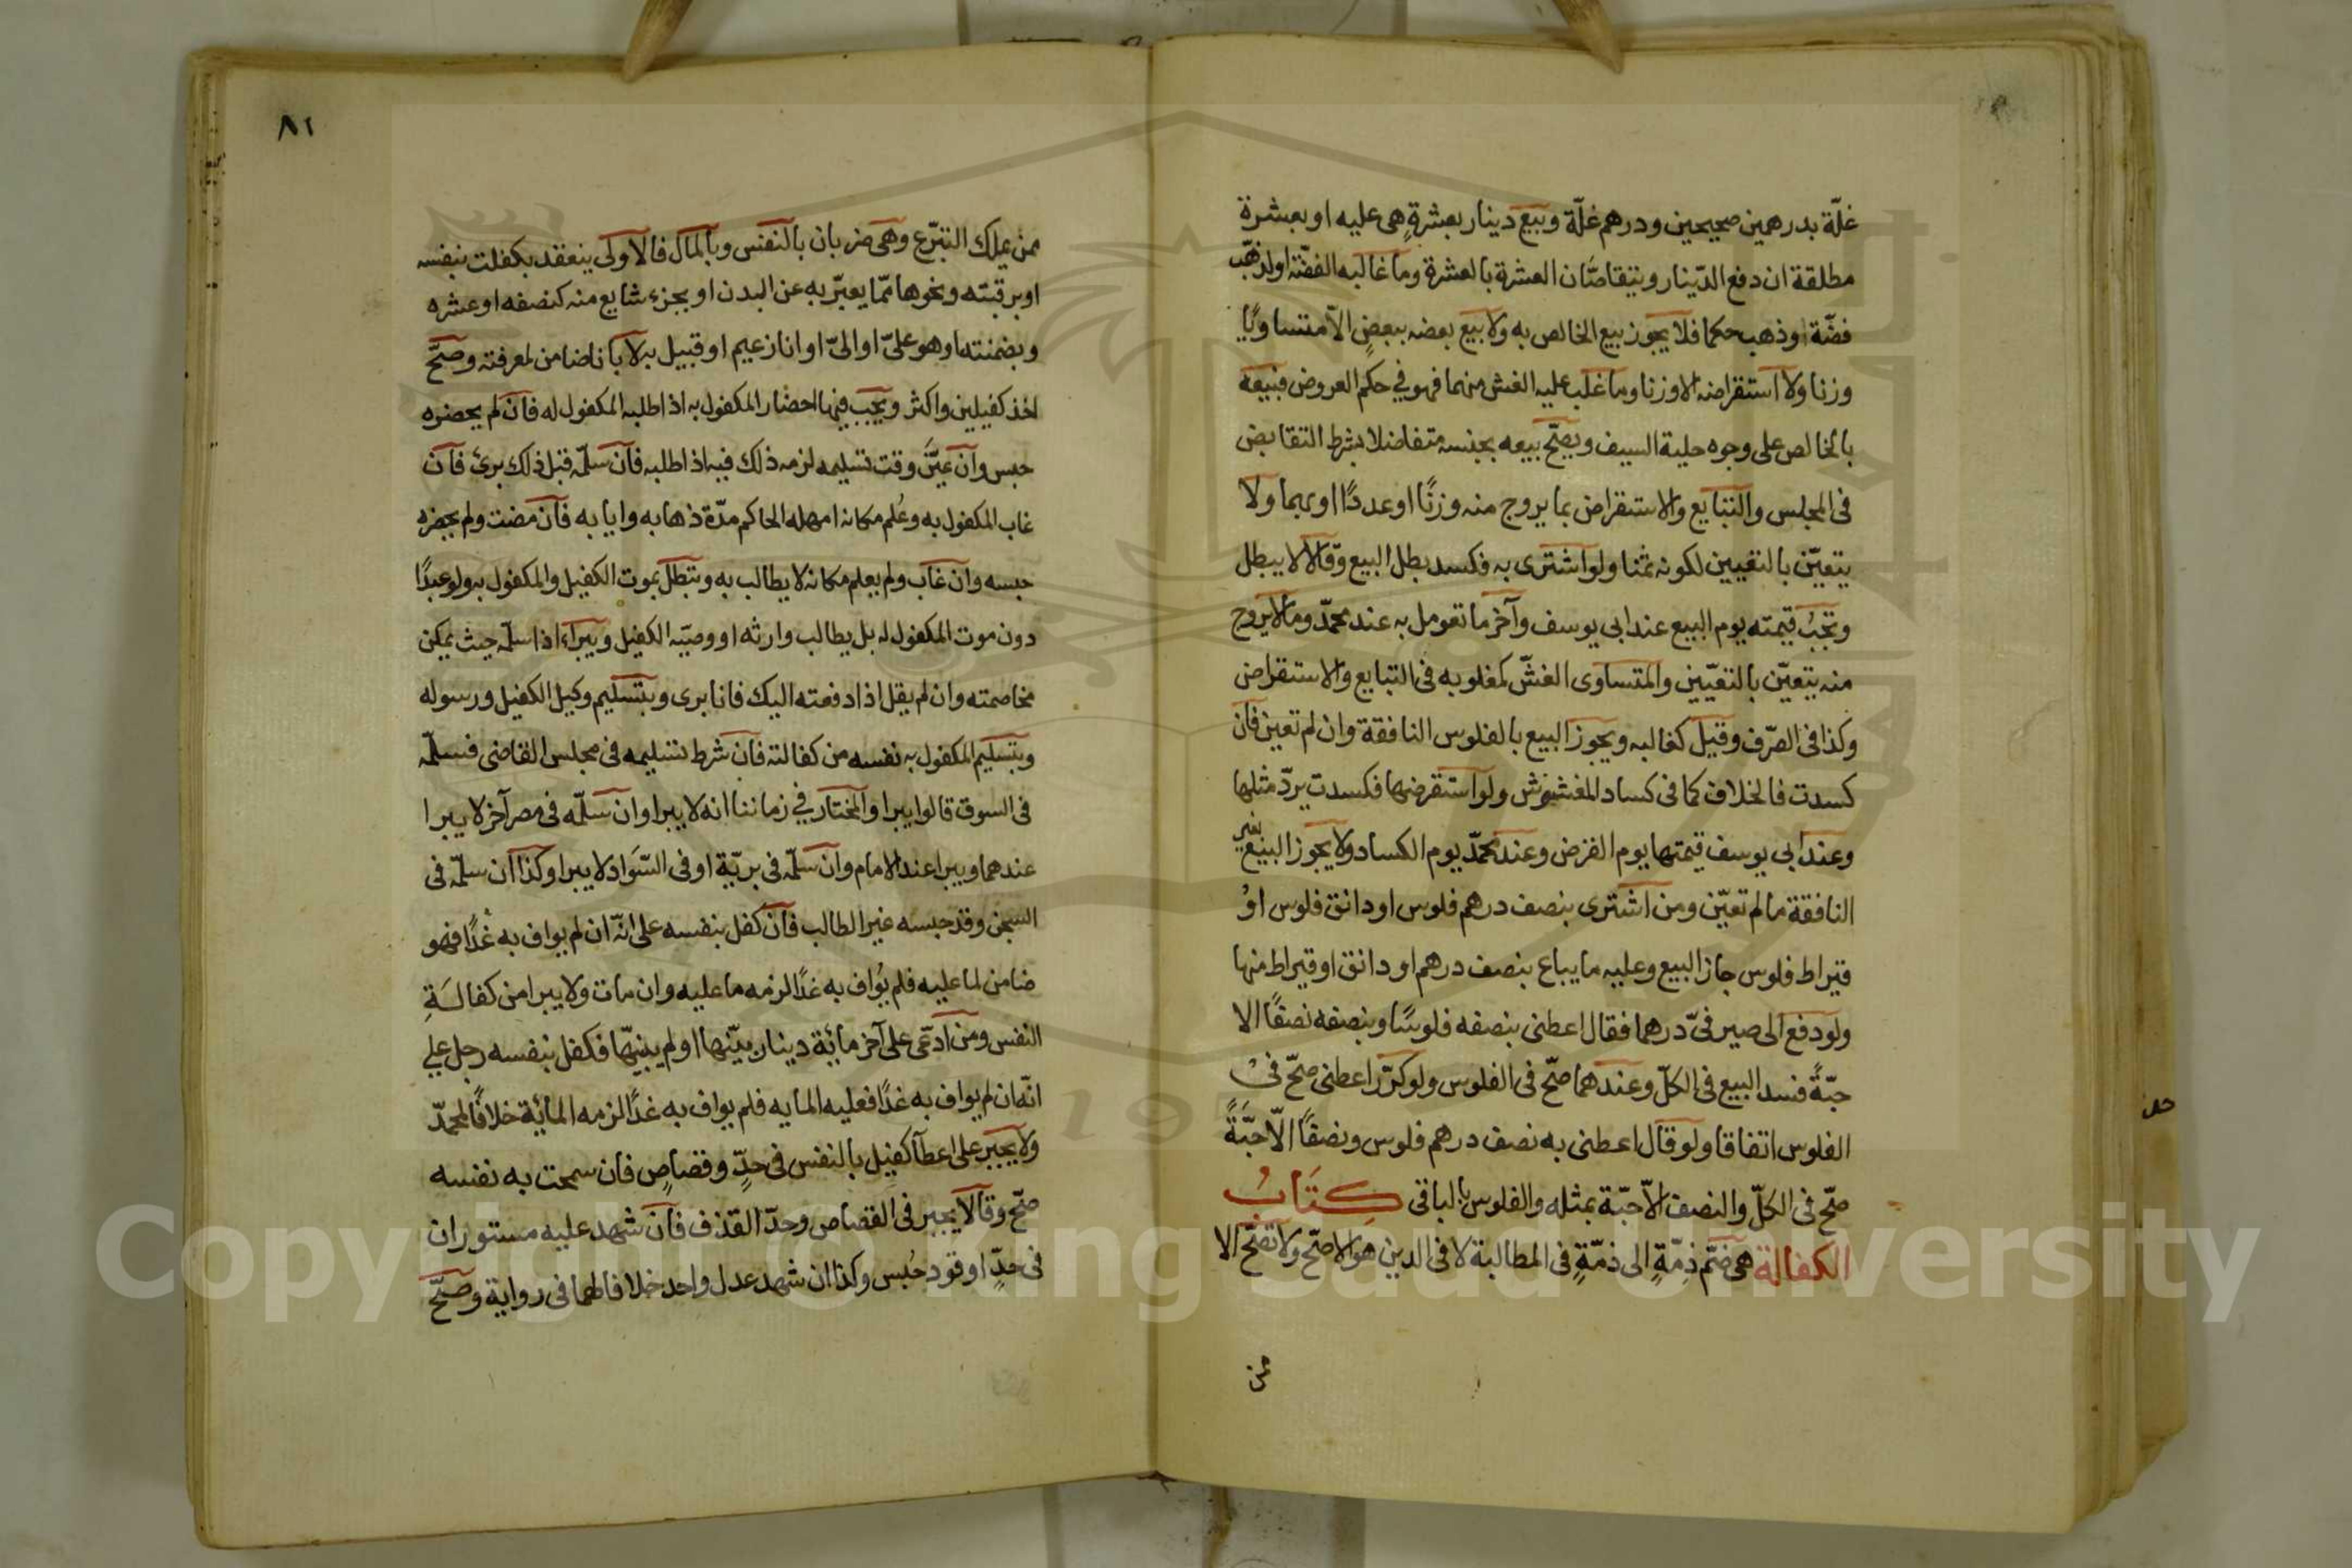 غلّة بدرهمين صحيحين ودرهم غلّة وبيع دينار بعشرةٍ هى عليه او بعشرة
مطلقة ان دفع الدّينار ويتقاصّان العشرة بالعشرة وما غالبه الفضّة او لذهب
فضّة وذهب حكما فلا يجوز بيع الخالص به ولا بيع بعضه ببعضٍ الاّ متساويًا
وزنا ولا استقراضه الا وزنا وما غلب عليه الغش منهما فهو في حكم العروض فبيعه
بالخالص على وجوه حلية السيف ويصحّ بيعه بجنسه متفاضلا بشرط التقابض
فى المجلس والتبايع والاستقراض بما يروج منه وزنًا او عددًا او بهما ولا
يتعيّن بالتعيين لكونه ثمنا ولو اشترى به فكسد بطل البيع وقالا لا يبطل
وتجبُ قيمته يوم البيع عند ابى يوسف وآخر ما تعومل به عند محمدّ وما لا يروج
منه يتعيّن بالتعيّين والمتساوى الغشّ كمغلوبه فى التبايع والاستقراض
وكذا فى الصّرف وقيل كغالبه ويجوز البيع بالفلوس النافقة وان لم تعين فان
كسدت فالخلاف كما فى كساد المغشوش ولو استقرضها فكسدت يردّ مثلها
وعند ابى يوسف قيمتها يوم القرض وعند محمدّ يوم الكساد ولا يجوز البيع بغير
النافقة ما لم تعيّن ومن اشترى بنصف درهم فلوس او دانق فلوس اوْ
قيراط فلوس جاز البيع وعليه ما يباع بنصف درهم او دانق او قيراط منها
ولو دفع الى صيرفىّ درهما فقال اعطنى بنصفه فلوسًا وبنصفه نصفًا الا
حبّةً فسد البيع فى الكلّ وعندهما صحّ فى الفلوس ولو كرّر اعطنى صحّ فىْ
الفلوس اتفاقا ولو قال اعطنى به نصف درهم فلوس ونصفًا الاّ حبّةً
صحّ فى الكلّ والنصف الاّ حبّة بمثله والفلوس بالباقى كِتَابُ
الكفالة هى ضمّ ذِمّةٍ الى ذمّةٍ فى المطالبة لا فى الدين هو الاصحّ ولا تصحّ الا
ممن
٨١
ممن يملك التبرّع وهى ضربان بالنفس وبالمال فالاولى ينعقد بكفلت بنفسه
او برقبته ونحوها ممّا يعبّر به عن البدن او بجزء شايع منه كنصفه او عشره
وبضمنته او هو علىّ او الىّ او انا زعيم او قبيل به لا بانا ضامن لمعرفته وصحّ
اخذ كفيلين واكثر ويجب فيها احضار المكفول به اذا طلبه المكفول له فان لم يحضره
حبس وان عيّن وقت تسليمه لزمه ذلك فيه اذا طلبه فان سلّمه قبل ذلك برئ فان
غاب المكفول به وعُلم مكانه امهله الحاكم مدّة ذهابه وايابه فان مضت ولم يحضره
حبسه وان غاب ولم يعلم مكانه لا يطالب به وتبطل بموت الكفيل والمكفول به ولو عبدًا
دون موت المكفول له بل يطالب وارثه او وصيّه الكفيل ويبراء اذا سلّمه حيث يمكن
مخاصمته وان لم يقل اذا دفعته اليك فانا برى وبتسليم وكيل الكفيل ورسوله
وبتسليم المكفول به نفسه من كفالته فان شرط تسليمه فى مجلس القاضى فسلّمه
فى السوق قالوا يبرا والمختار في زماننا انه لا يبرا وان سلّمه فى مصر آخر لا يبرا
عندهما ويبرا عند الامام وان سلّمه فى بريّة او فى السّوَاد لا يبرا وكذا ان سلّمه فى
السجن وقد حبسه غير الطالب فان كفل بنفسه على انّه ان لم يواف به غُدًا فهو
ضامن لما عليه فلم يُواف به غدًا لزمه ما عليه وان مات ولا يبرا من كفالَةِ
النفس ومن ادّعى على آخر مائة دينار بيّنها او لم يبيّنها فكفل بنفسه رجل على
انّه ان لم يواف به غدًا فعليه المايه فلم يواف به غدًا لزمه المائة خلافًا لمحمدّ
ولا يجبر على اعطآ كفيل بالنفس فى حدٍّ وقصاصٍ فان سمحت به نفسه
صحّ وقالا يجبر فى القصاص وحدّ القذف فان شهد عليه مستوران
فى حدٍّ او قود حُبس وكذا ان شهد عدل واحد خلافا لهما فى رواية وصحّ
Copyright © King Saud University